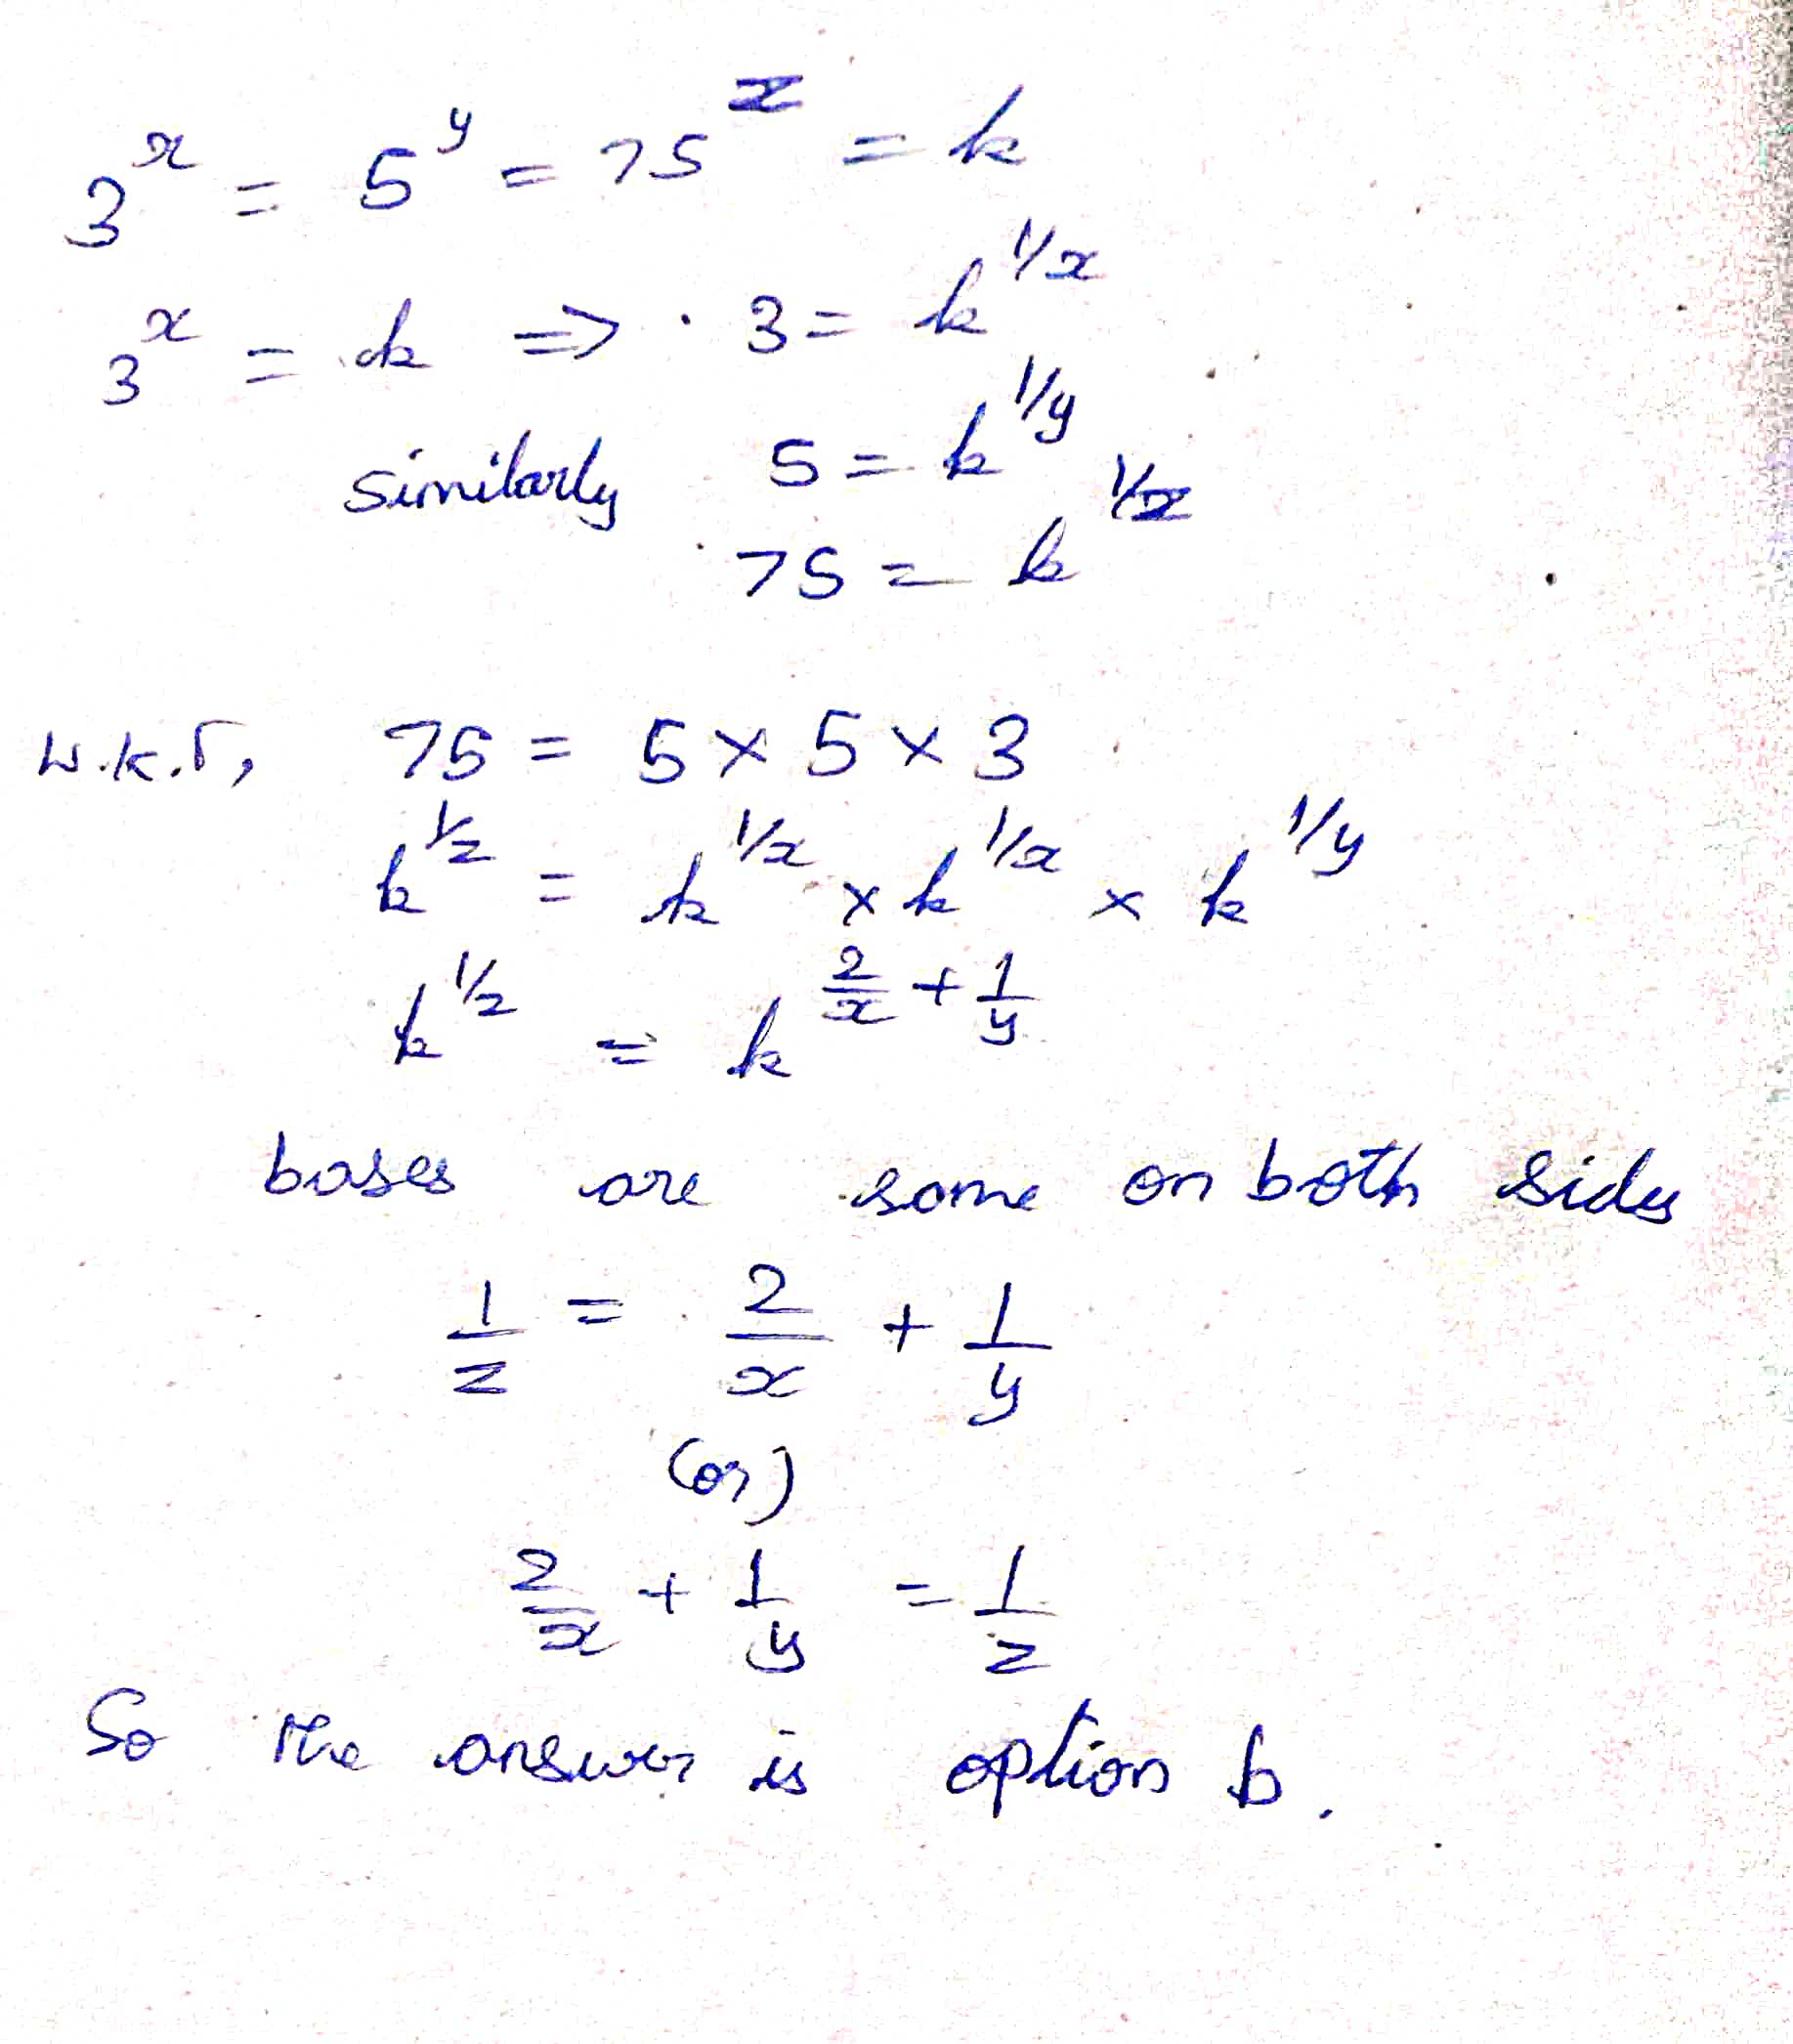 3^x = 5^y = 75^z = k
3^x = k => 3 = k^1/x
similarly 5 = k^1/y
75 = k^1/z
W.K.T, 75 = 5 × 5 × 3
k^1/z = k^1/x × k^1/x × k^1/y
k^1/z = k^2/x + 1/y
bases are same on both sides
1/z = 2/x + 1/y
(or)
2/x + 1/y = 1/z
So the answer is option b.